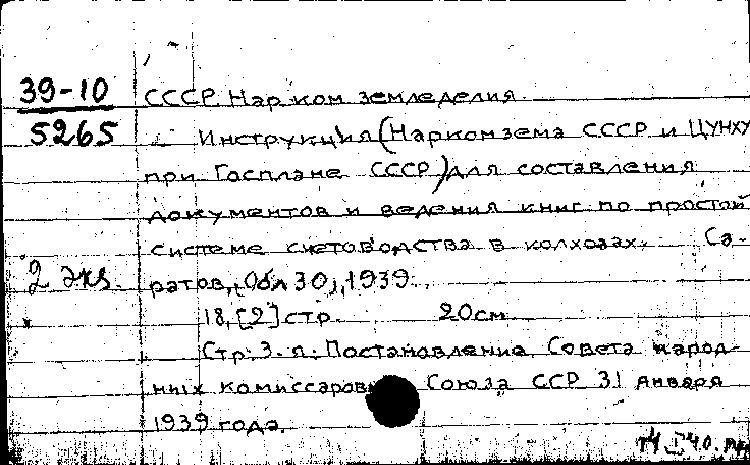 39-10
5265
СССР. Нар. ком. земледелия.
Инструкция (Наркомзема СССР и ЦУНХУ
при Госплане СССР) для составления
документов и ведения книг по простой
системе счетоводства в колхозах. Са-
ратов, Обл 30, 1939.
2 экз.
18, [2] стр. 20см
Стр. 3-я: Постановление Совета народ-
ных комиссаров Союза ССР 31 января
1939 года.